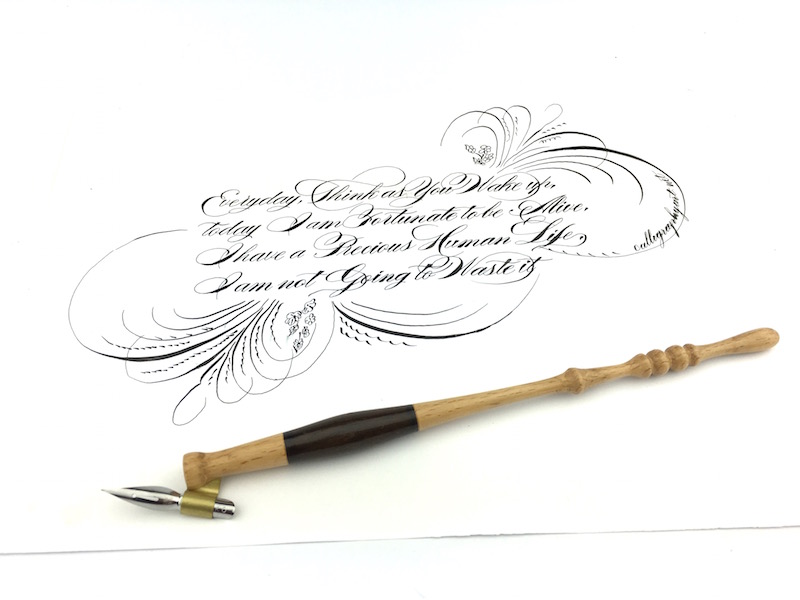 Everyday, Think as You Wake up,
today I am Fortunate to be Alive,
I have a Precious Human Life,
I am not Going to Waste it